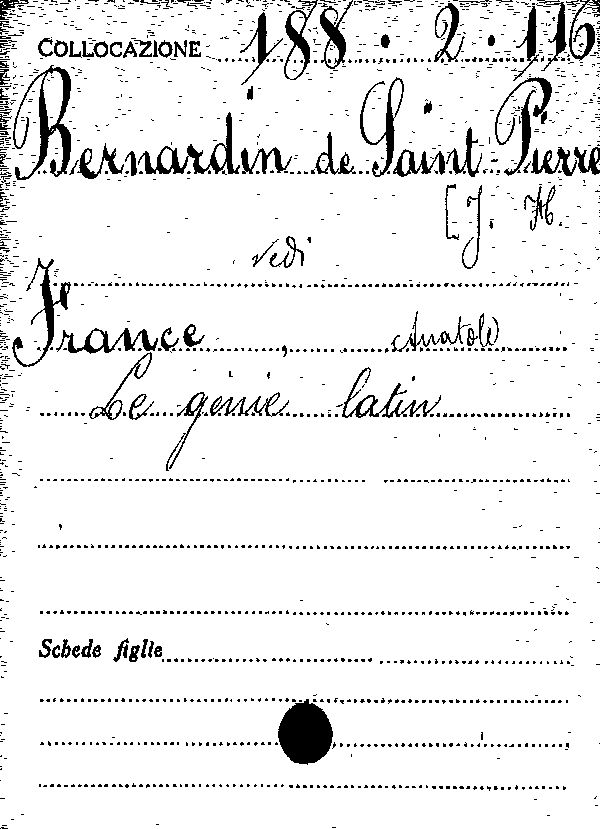 COLLOCAZIONE 188 . 2 . 116
Bernardin de Saint-Pierre
[J. H.
vedi
France, Anatole
Le génie latin
Schede figlie